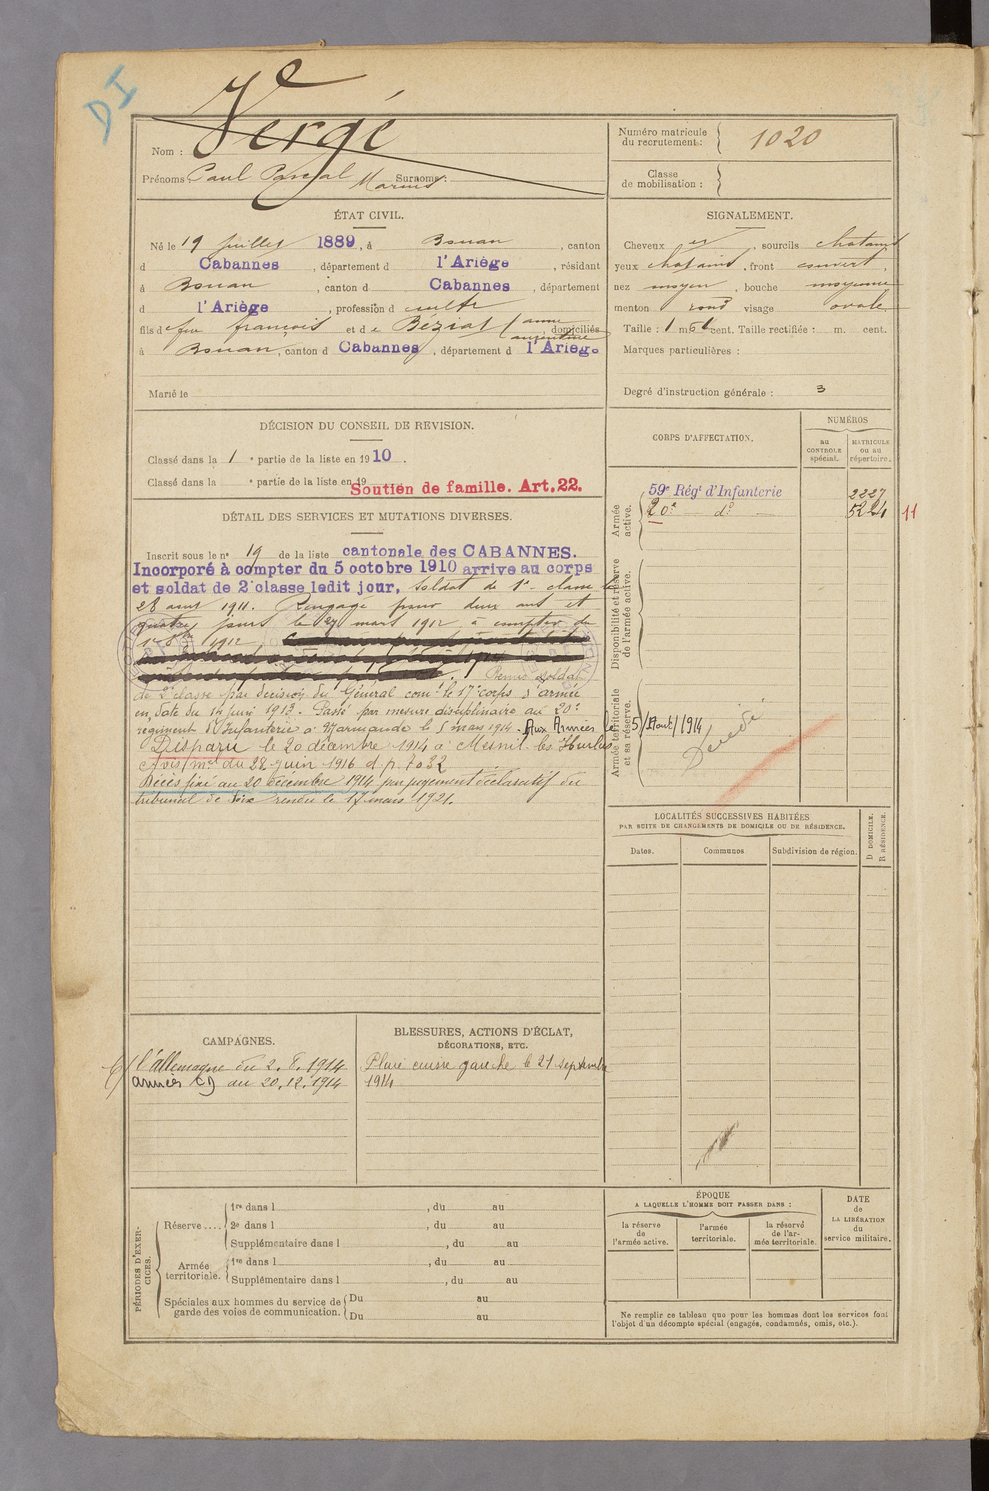 DI
Nom : Vergé
Prénoms : Paul Pascal Marius Surnoms :
Numéro matricule du recrutement : 1020
Classe de mobilisation :
ÉTAT CIVIL.
Né le 19 juillet 1889, à Bouan, canton
d Cabannes, département d l'Ariège, résidant
à Bouan, canton d Cabannes, département
d l'Ariège, profession d cultr
fils de feu françois et de Béziat (anne argentine, domiciliés
à Bouan, canton d Cabannes, département d l'Ariège
Marié le
SIGNALEMENT.
Cheveux et, sourcils chatains
yeux chatains, front couvert,
nez moyen, bouche moyenne
menton rond visage ovale
Taille : 1 m 61 cent. Taille rectifiée : m. cent.
Marques particulières :
Degré d'instruction générale : 3
DÉCISION DU CONSEIL DE REVISION.
Classé dans la 1e partie de la liste en 1910.
Classé dans la e partie de la liste en 19
Soutien de famille. Art. 22.
DÉTAIL DES SERVICES ET MUTATIONS DIVERSES.
Inscrit sous le n° 19 de la liste cantonale des CABANNES.
Incorporé à compter du 5 octobre 1910 arrive au corps
et soldat de 2e classe ledit jour, Soldat de 1e classe le
28 aout 1911. Rengagé pour deux ans et
quatre jours le 27 mars 1912 à compter du
1er 8bre 1912
Remis soldat
de 2e classe par décision du Général comt le 17e corps d'armée
en date du 14 juin 1913. Passé par mesure disciplinaire au 20e
régiment d'Infanterie à Marmande le 5 mars 1914. Aux Armées le 5/Août/1914
Disparu le 20 décembre 1914 à Mesnil les Hurlus
Avis/mel du 28 juin 1916 d.p. 6032
Décès fixé au 20 décembre 1914 par jugement déclaratif du
tribunal de Foix rendu le 17 mars 1921.
CORPS D'AFFECTATION.
NUMÉROS
au CONTROLE spécial.
MATRICULE ou au répertoire.
Armée active.
59e Régt d'Infanterie 2227
20e do 5224 11
Disponibilité et réserve de l'armée active.
Armée territoriale et sa réserve.
Décédé
LOCALITÉS SUCCESSIVES HABITÉES
PAR SUITE DE CHANGEMENTS DE DOMICILE OU DE RÉSIDENCE.
Dates.
Communes
Subdivision de région.
D DOMICILE.
R RÉSIDENCE.
CAMPAGNES.
C/ l'allemagne du 2.8.1914
armées C) au 20.12.1914
BLESSURES, ACTIONS D'ÉCLAT,
DÉCORATIONS, ETC.
Plaie cuisse gauche le 21 septembre
1914
PÉRIODES D'EXERCICES.
Réserve ....
1re dans l , du au
2e dans l , du au
Supplémentaire dans l , du au
Armée territoriale.
1re dans l , du au
Supplémentaire dans l , du au
Spéciales aux hommes du service de garde des voies de communication.
Du au
Du au
ÉPOQUE
A LAQUELLE L'HOMME DOIT PASSER DANS :
la réserve de l'armée active.
l'armée territoriale.
la réserve de l'armée territoriale.
DATE de LA LIBÉRATION du service militaire.
Ne remplir ce tableau que pour les hommes dont les services font
l'objet d'un décompte spécial (engagés, condamnés, omis, etc.).